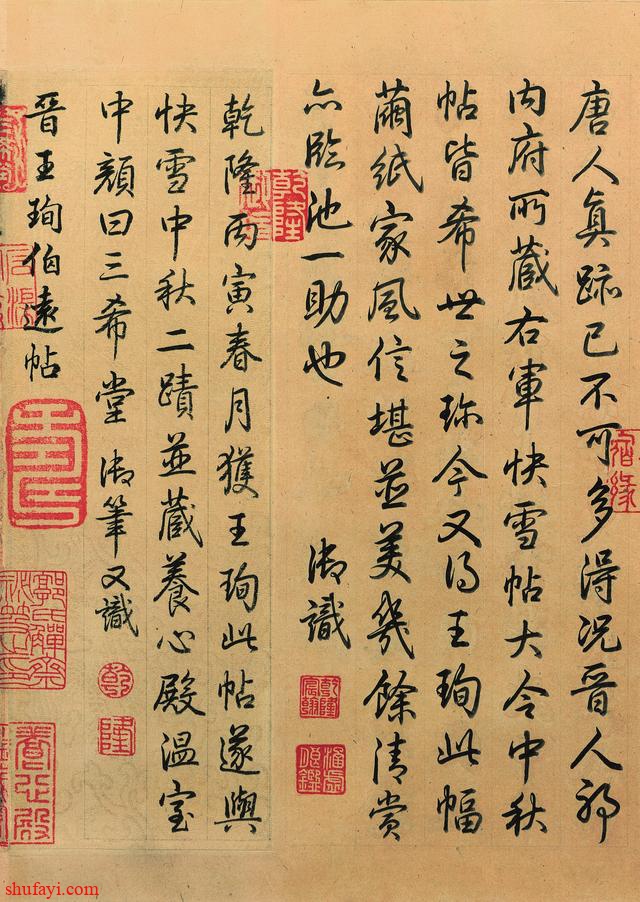 唐人真跡已不可多得況晉人耶
内府所藏右軍快雪帖大令中秋
帖皆希世之珎今又得王珣此幅
繭紙家風信堪並美幾餘清賞
亦臨池一助也 御識
乾隆
乾隆宸翰
乾隆丙寅春月獲王珣此帖遂與
快雪中秋二蹟並藏養心殿温室
中顏曰三希堂御筆又識
乾
隆
晉王珣伯遠帖
郭氏觶齋秘笈之印
養心殿
shufayi.com